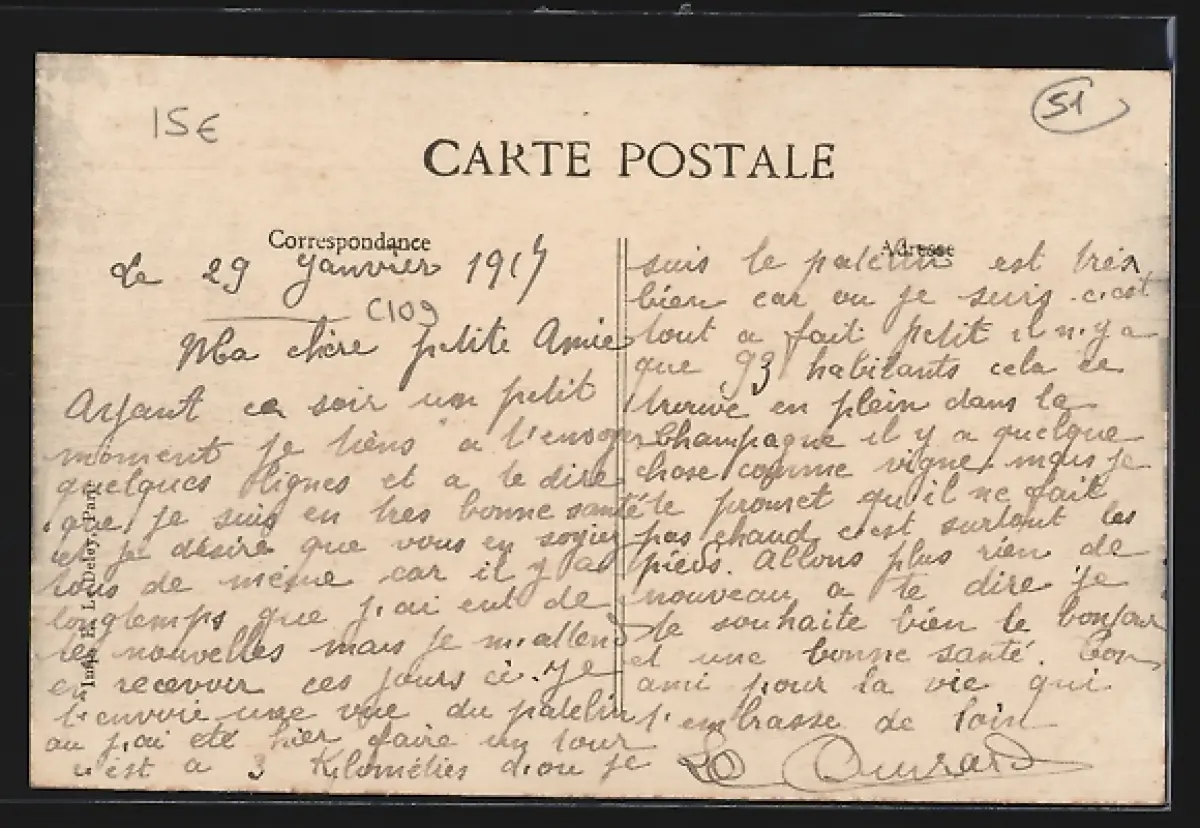 15€
51
CARTE POSTALE
Correspondance
Adresse
Le 29 Janvier 1917
C109
Ma chère petite Amie
Ayant ce soir un petit
moment je tiens a t'envoyer
quelques lignes et a te dire
que je suis en tres bonne santé
et je désire que vous en soyier
tous de même car il y a
longtemps que j'ai eut de
tes nouvelles mais je m'attend
en recevoir ces jours ci. Je
t'envoie une vue du patelin
ou j'ai été hier faire un tour
c'est a 3 Kilométres d'ou je
suis le patelin est très
bien car ou je suis c'est
tout a fait petit il n'y a
que 93 habitants cela ce
trouve en plein dans la
Champagne il y a quelque
chose comme vigne mais je
te promet qu'il ne fait
pas chaud c'est surtout les
pieds. Allons plus rien de
nouveau a te dire je
te souhaite bien le bonjour
et une bonne santé. Ton
ami pour la vie qui
t'embrasse de loin
Imp. E. Le Deley, Paris